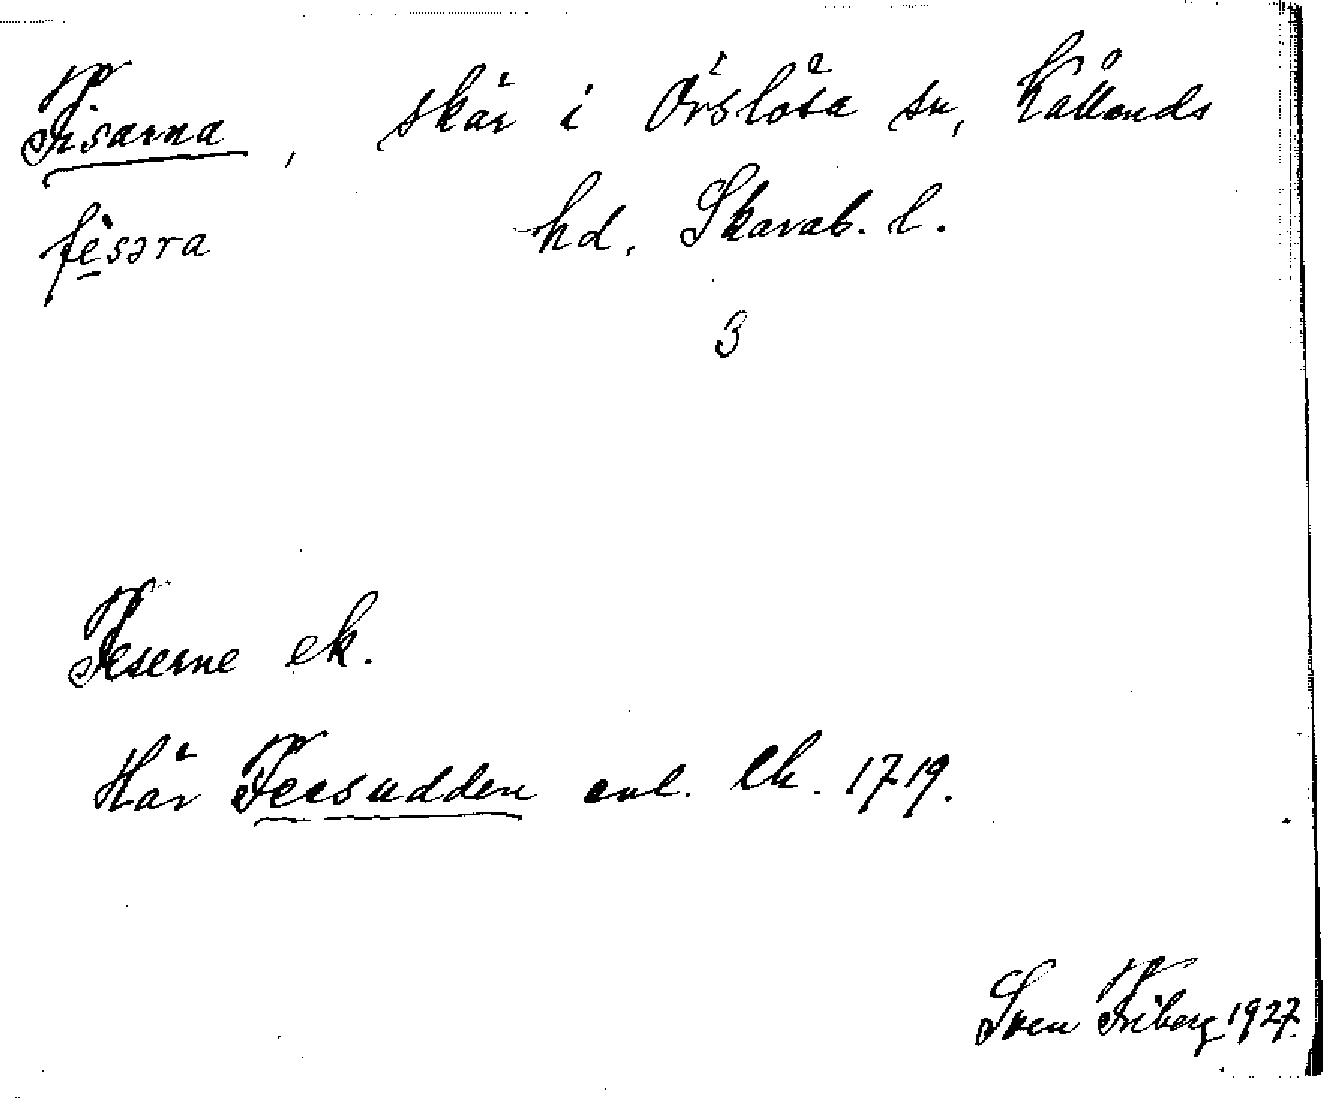 Fisarna, skär i Örslösa sn, Kållands
fèsəra hd. Skarab. l.
3
Feserne ek.
Här Feesudden enl. ek. 1719.
Sven Friberg 1927.